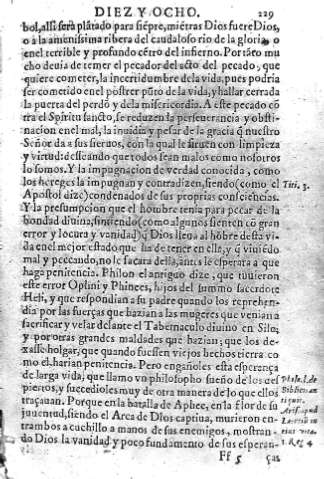 DIEZ Y OCHO. 229
bol, alli será plãtado para siẽpre, miẽtras Dios fuere Dios,
o à la amenissima ribera del caudaloso rio de la gloria, o
en el terrible y profundo cerco del infierno. Por tãto mu
cho deuia de temer el pecador del acto del pecado, que
quiere cometer, la incertidũbre de la vida, pues podria
ser cometido en el postrer pũto de la vida, y hallar cerrada
la puerta del perdõ y de la misericordia. A este pecado cõ
tra el Spiritu sancto, se reduzen la perseuerancia y obsti-
nacion en el mal, la inuidia y pesar de la gracia q̃ nuestro
Señor da a sus sieruos, con la qual le siruen con limpieza
y virtud: desseando que todos sean malos como nosotros
lo somos. Y la impugnacion de verdad conocida, como
los hereges la impugnan y contradizen, siendo (como el Titi. 3.
Apostol dize) condenados de sus proprias consciencias.
Y la presumpcion que el hombre tenia para pecar de la
bondad diuina, fintiendo (como algunos sienten cõ gran
error y locura y vanidad) q̃ Dios lleua al hõbre desta vi-
da en el mejor estado que ha de tener en ella, y q̃ viuiẽdo
mal y peccando, no le sacara della, antes le esperara a que
haga penitencia. Philon el antiguo dize, que tuuieron
este error Ophni y Phinees, hijos del summo sacerdote
Heli, y que respondian a su padre quando los reprehen-
dia por las fuerças que hazian a las mugeres que venian a
sacrificar y velar delante el Tabernaculo diuino en Silo,
y por otras grandes maldades que hazian; que los de-
xasse holgar, que quando fuessen viejos hechos tierra co
mo el, harian penitencia. Pero engañoles esta esperança
de larga vida, que llamo vn philosopho sueño de los des Philo. l. de
piertos, y succedioles muy de otra manera de lo que ellos Biblicar. an
traçauan. Porque en la batalla de Aphec, en la flor de su tiquit.
juuentud, siendo el Arca de Dios captiua, murieron en- apud
trambos a cuchillo a manos de sus enemigos, mostran-
do Dios la vanidad y poco fundamento de sus esperan- 1. Reg. 4
Ff 5 ças